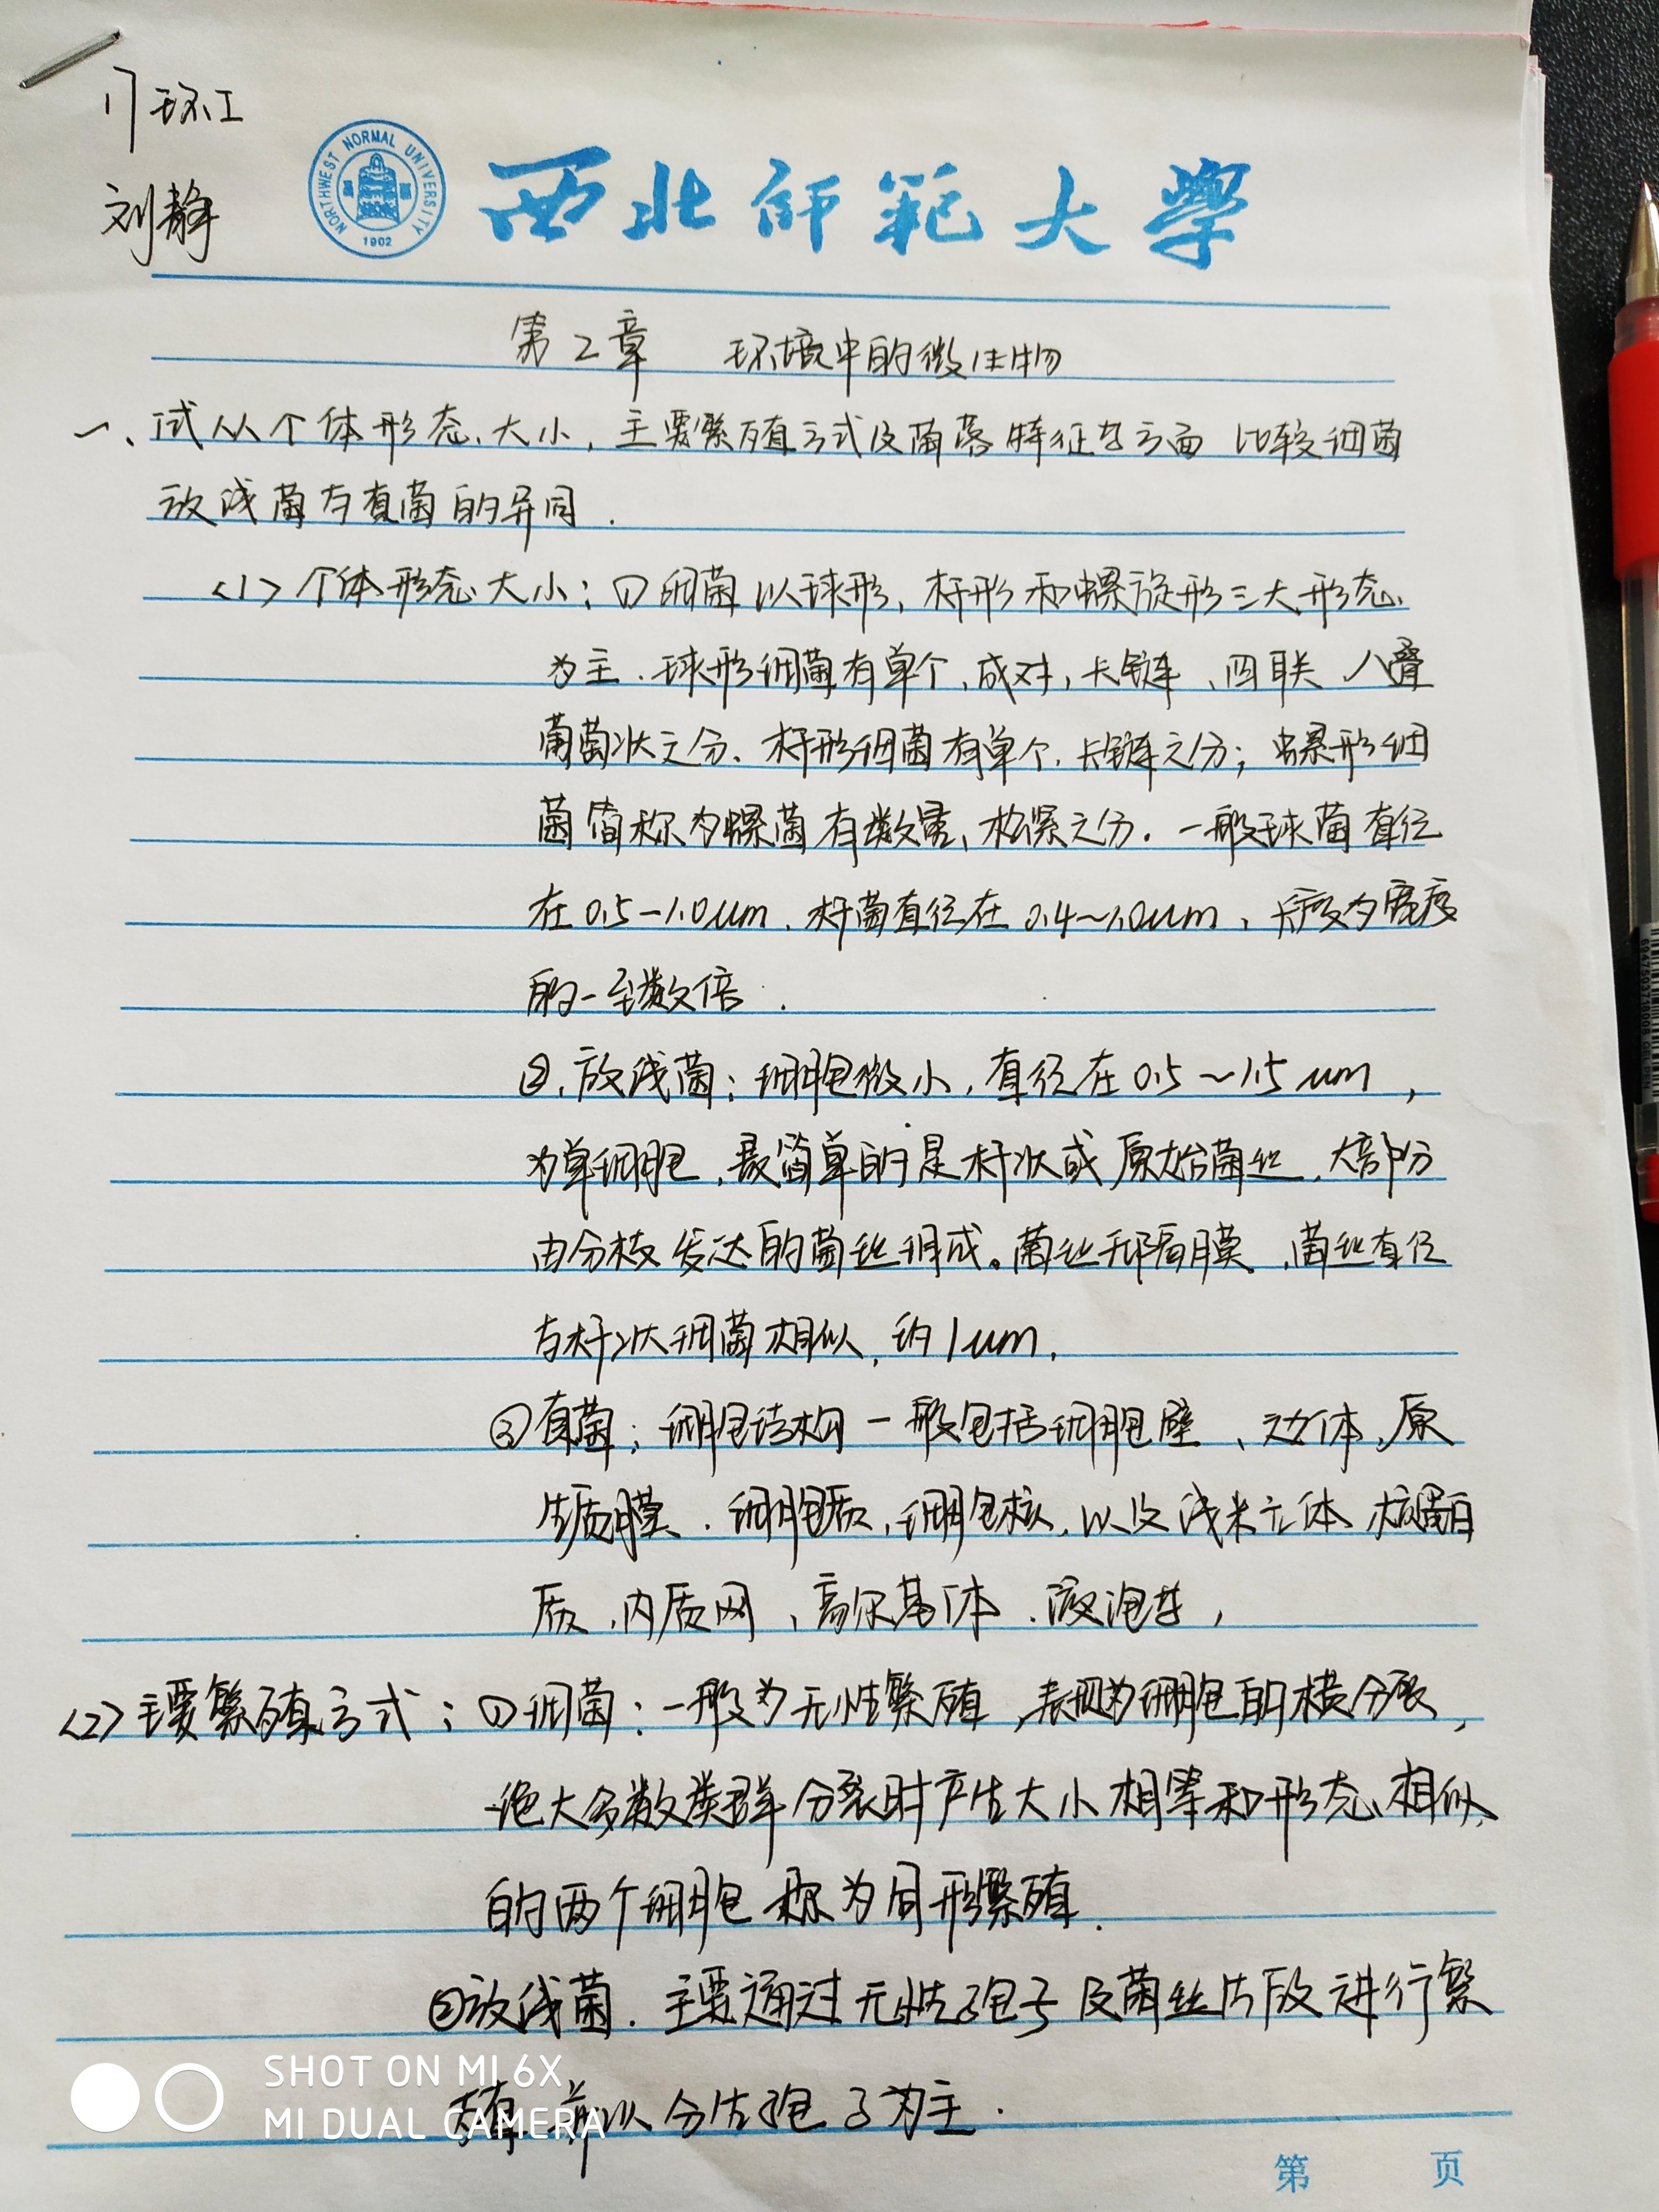 17环工
刘静
NORTHWEST NORMAL UNIVERSITY
1902
西北师范大学
第2章 环境中的微生物
一、试从个体形态、大小,主要繁殖方式及菌落特征等方面比较细菌
放线菌与真菌的异同.
<1>个体形态大小:①细菌以球形、杆形和螺旋形三大形态
为主.球形细菌有单个、成对,长链、四联 八叠
葡萄状之分、杆形细菌有单个、长链之分;螺形细
菌简称为螺菌有数量、松紧之分.一般球菌直径
在0.5-1.0μm、杆菌直径在0.4~1.0μm、长度为宽度
的一至数倍.
②、放线菌:细胞微小,直径在0.5~1.5μm,
为单细胞,最简单的是杆状或原始菌丝,大部分
由分枝发达的菌丝组成。菌丝无隔膜、菌丝直径
与杆状细菌相似,约1μm.
③真菌:细胞结构一般包括细胞壁、边体、原
生质膜.细胞质,细胞核,以及线粒体 核糖
质、内质网、高尔基体.液泡等,
<2>主要繁殖方式:①细菌:一般为无性繁殖,表现为细胞的横分裂,
绝大多数类群分裂时产生大小相等和形态相似
的两个细胞 称为同形繁殖.
②放线菌.主要通过无性孢子及菌丝片段进行繁
殖 并以分生孢子为主.
SHOT ON MI 6X
MI DUAL CAMERA
第 页